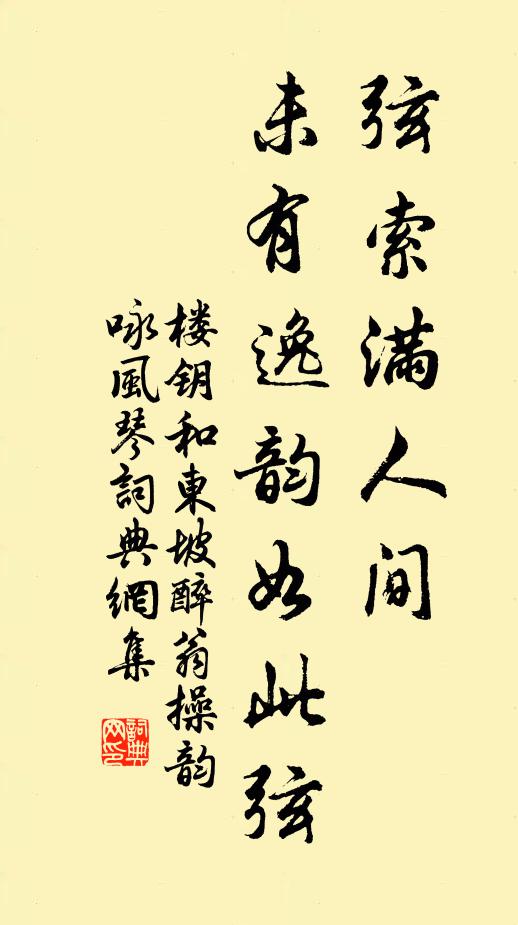 弦索满人间
未有逸韵如此弦
楼钥和東坡醉翁操韵
咏風琴詞典網集
詞典
网印